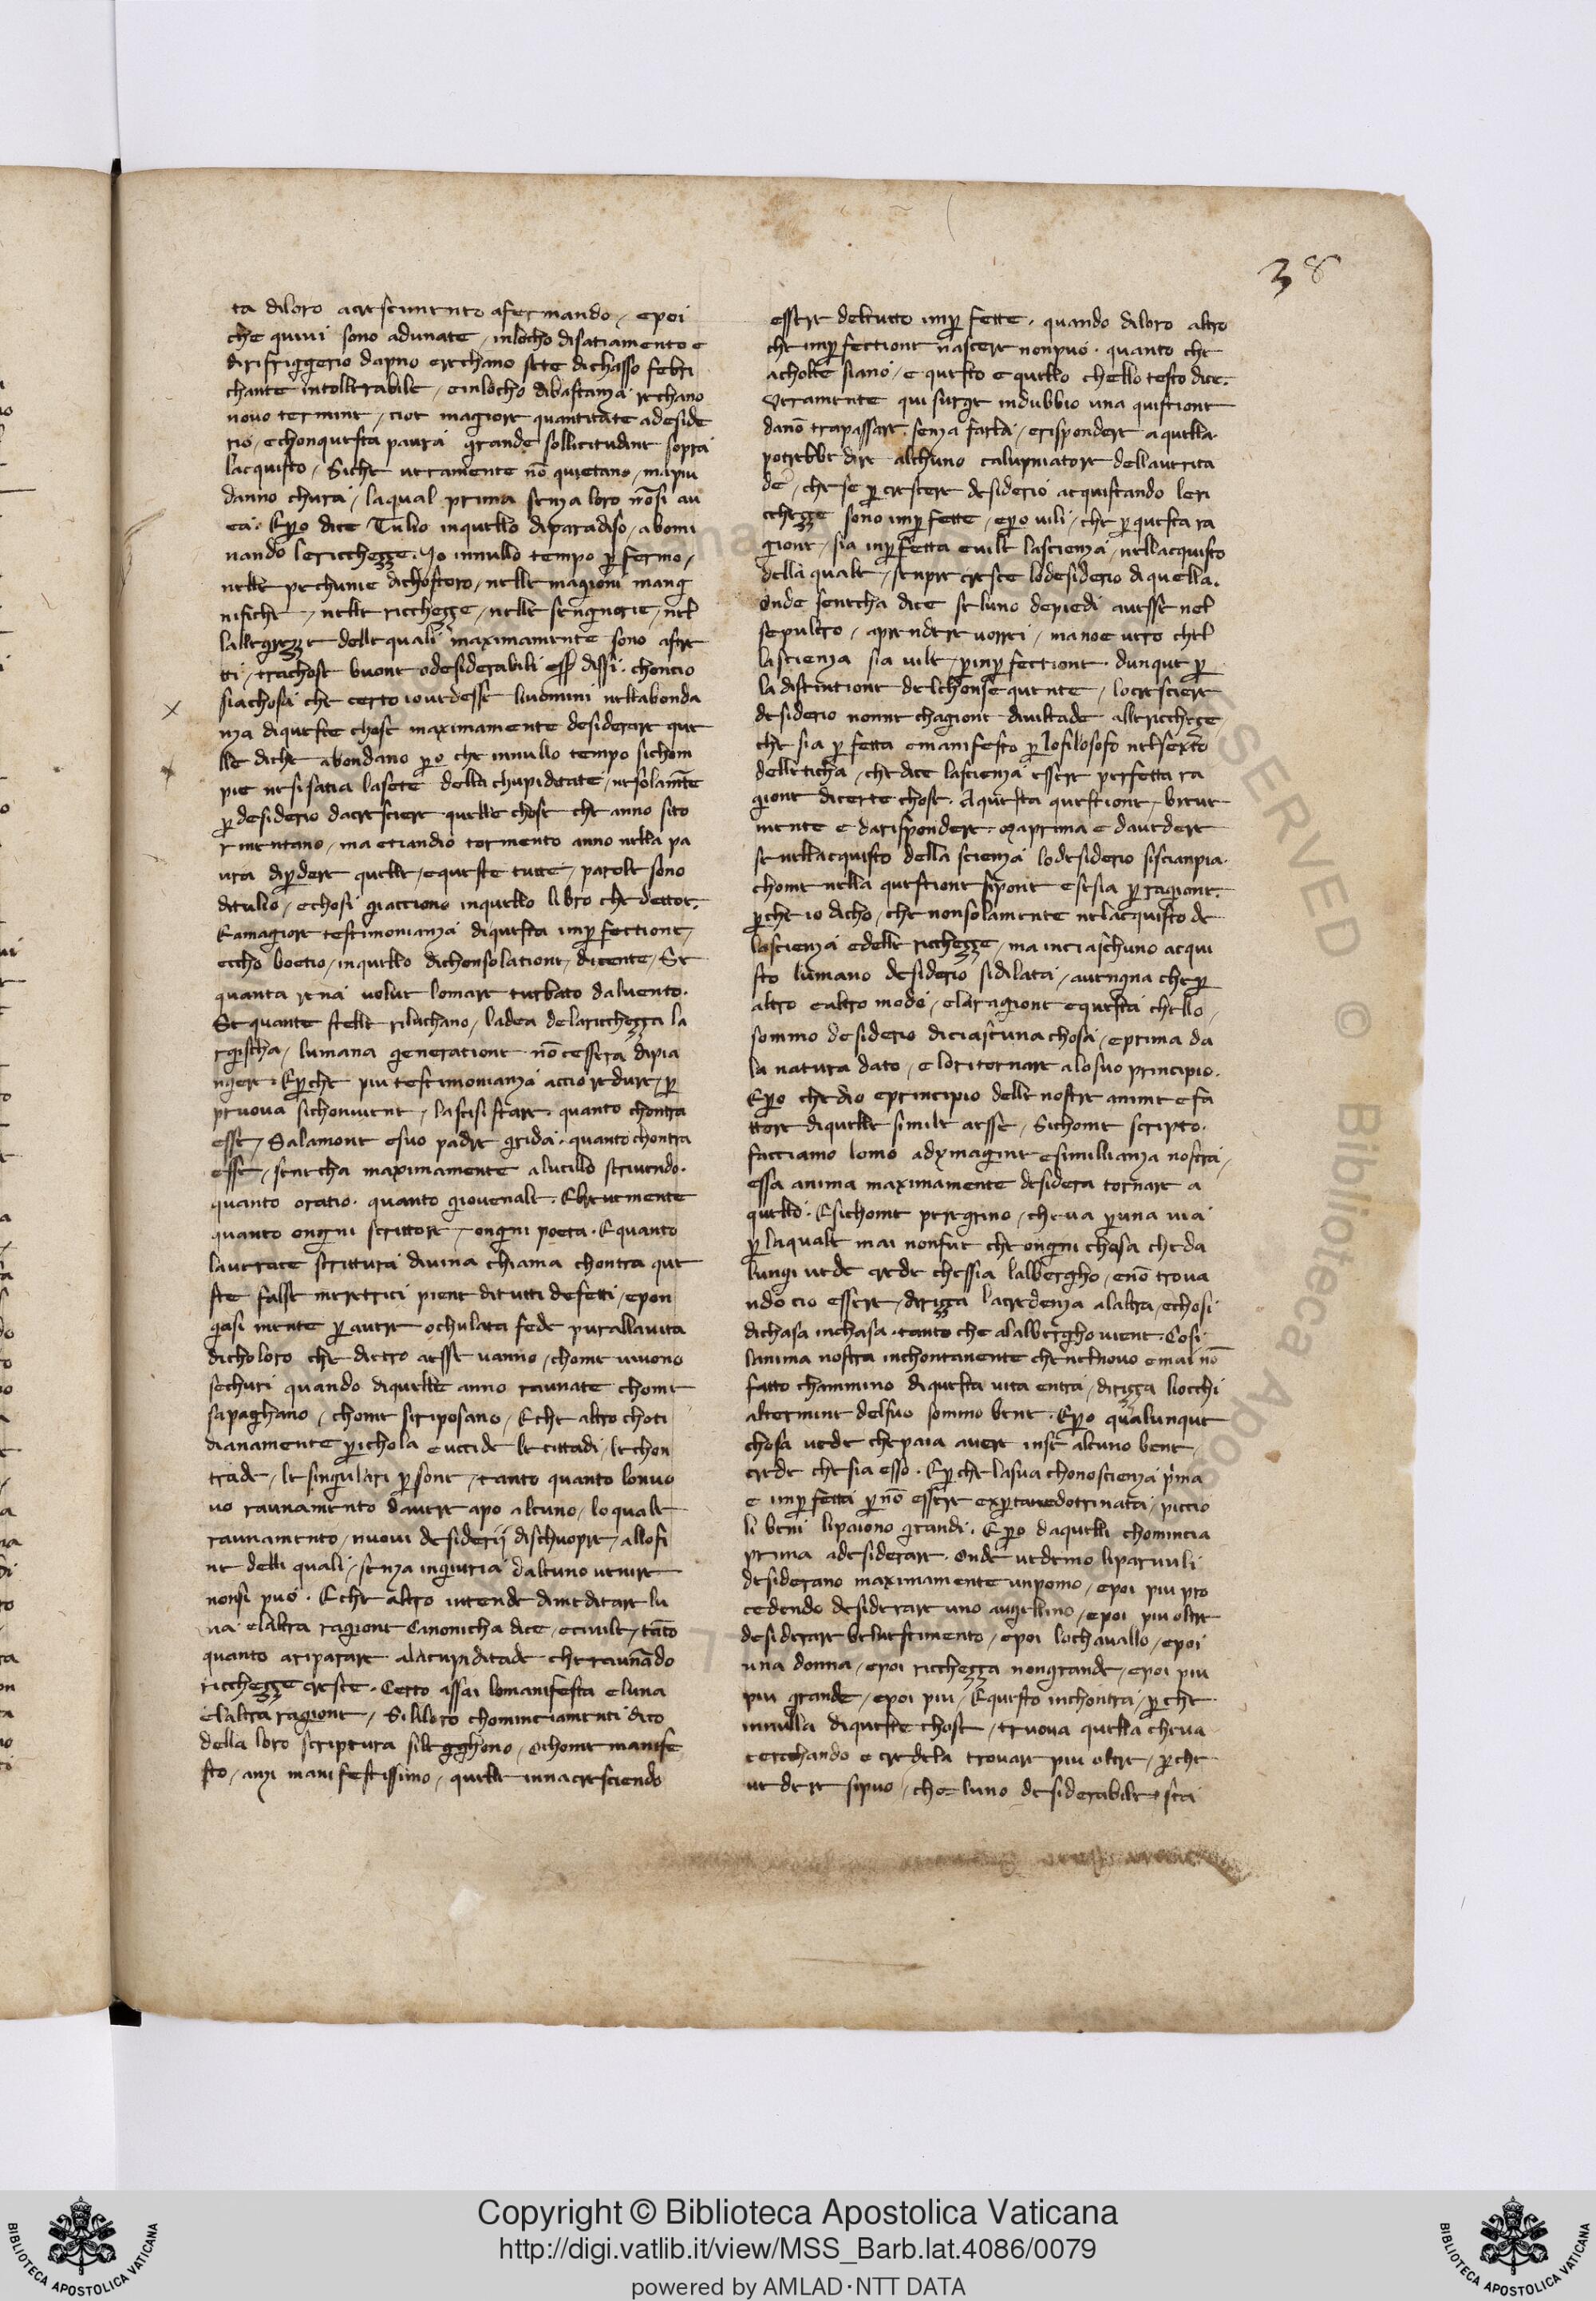 38
ta diloro acrescimento afermando / epoi
che quiui sono adunate / inlocho disatiamento e
dirifriggerio dapno erechano sete dichasso febri
chante intollerabile / einlocho dibastanza rechano
nouo termine / cioe magiore quantitate adeside
rio / echonquesta paura grande sollicitudine sopra
lacquisto / Siche ueramente nō quietano / mapiu
danno chura / laqual prima senza loro nōsi au
ea · Epero dice Tulio inquello diparadiso / abomi
nando lericchezze · Io innullo tempo per fermo /
nelle pechunie dichostoro / nelle magioni mang
nifiche / nelle ricchezze / nelle sengnorie / nel
lallegrezze delle quali maximamente sono afre
tti / trachose buone odesiderabili esser dissi · choncio
siachosa che certo iouedesse liuomini nellabonda
nza diqueste chose maximamente desiderare que
lle diche abondano pero che innullo tempo sichom
pie nesisatia lasete della chupiditate / nesolamēte
per desiderio dacresciere quelle chose che anno sito
rmentano / ma etiandio tormento anno nella pa
ura diperdere quelle / equeste tutte / parole sono
ditulio / echosi giacciono inquello libro chedettoe ·
Eamagiore testimonianza diquesta imperfectione /
eccho boetio / inquello dichonsolatione / dicente / Se
quanta rena uolue lomare turbato daluento ·
Se quante stelle riluchano / ladea delaricchezza la
rgischa / lumana generatione nō cessera dipia
ngere · Eperche piu testimonianza accio redure / per
pruoua sichonuiene / lascisi stare · quanto chontra
esse / Salamone esuo padre grida · quanto chontra
esse / senecha maximamente alucillo scriuendo ·
quanto oratio · quanto giouenale · Ebreuemente
quanto ongni scrittore / ongni poeta · Equanto
lauerace scrittura diuina chiama chontra que
ste false meretrici piene ditutti defetti / epon
gasi mente per auere ochulata fede purallauita
dicholoro che dietro aesse uanno / chome uiuono
sechuri quando diquelle anno raunate chome
sapaghano / chome seriposano / Eche altro choti
dianamente perichola euccide le cittadi / lechon
trade / le singulari persone / tanto quanto lonuo
uo raunamento dauere apo alcuno / loquale
raunamento / nuoui desiderij dischuopre / allofi
ne delli quali / senza ingiuria dalcuno uenire
nonsi puo · Eche altro intende dimeditare lu
na elaltra ragione Canonicha dice / eciuile / tāto
quanto ariparare alacupiditade cheraunādo
ricchezze cresce · Certo assai lomanifesta eluna
elaltra ragione / Sililoro chominciamenti dico
della loro scriptura sileggghono / Ochome manife
sto / anzi manifestissimo / quelle innacresciendo
essere deltutto imperfette · quando diloro altro
che imperfectione nascere nonpuo · quanto che
acholte siano / e questo equello chello testo dice ·
Veramente qui surge indubbio una quistione
danō trapassare senza farla / erispondere aquella ·
potrebbe dire alchuno calupniatore dellauerita
de / chese per crescere desiderio acquistando leri
cchezze sono imperfette / epero uili / che per questa ra
gione / sia imperfetta euile lascienza / nellacquisto
della quale / senpre cresce lodesiderio di quella ·
Onde senecha dice seluno depiedi auesse nel
sepulcro / aprendere uorrei / ma noe uero chel
lascienza sia uile / perimperfectione · dunque per
la distrutione delchonsequente / locresciere
desiderio nonne chagione diuiltade allericchezze
che sia perfetta emanifesto per lofilosofo nelsexto
delleticha / che dice lascienza essere perfetta ra
gione dicerte chose · Aquesta questione / breue
mente e darispondere · Maprima e dauedere
se nellacquisto della scienza lodesiderio siscianpia ·
chome nella questione sipone esesia per ragione ·
perche io dicho / che nonsolamente nelacquisto de
lascienza edelle ricchezze / ma inciaschuno acqui
sto lumano desiderio sidilata / auengna cheper
altro ealtro modo / elaragione equesta chello /
sommo desiderio diciascuna chosa / eprima da
la natura dato / e loritornare alosuo principio ·
Epero chedio eprincipio delle nostre anime efa
ttore diquelle simile aesse / Sichome scripto ·
facciamo lomo adymagine esimillianza nostra /
essa anima maximamente desidera tornare a
quello · Esichome peregrino / cheua peruna uia
per laquale mai nonfue che ongni chasa cheda
lungi uede crede chessia lalbergho / enō troua
ndo cio essere / dirizza lacredenza alaltra / echosi
dichasa inchasa · tanto che alalbergho uiene · Cosi
lanima nostra inchontanente chenelnouo emai nō
fatto chammino diquesta uita entra / dirizza liocchi
altermine delsuo sommo bene · Epero qualunque
chosa uede chepaia auere inse alcuno bene /
crede chesia esso · Eperche lasua chonoscienza pima
e imperfetta per nō essere expertanedotrinata / piccio
li beni lipaiono grandi · Epero daquelli chomincia
prima adesiderare · Onde uedemo liparuuli
desiderano maximamente unpomo / epoi piu pro
cedendo desiderare uno augellino / epoi piu oltre
desiderare beluestimento / epoi lochauallo / epoi
una donna / epoi ricchezza nongrande / epoi piu
piu grande / epoi piu / Equesto inchontra / per che
innulla diqueste chose / truoua quella cheua
cercchando e credela trouare piu oltre / perche
uedere sipuo / che luno desiderabile / sta
Copyright © Biblioteca Apostolica Vaticana
http://digi.vatlib.it/view/MSS_Barb.lat.4086/0079
powered by AMLAD·NTT DATA
BIBLIOTECA APOSTOLICA VATICANA
BIBLIOTECA APOSTOLICA VATICANA